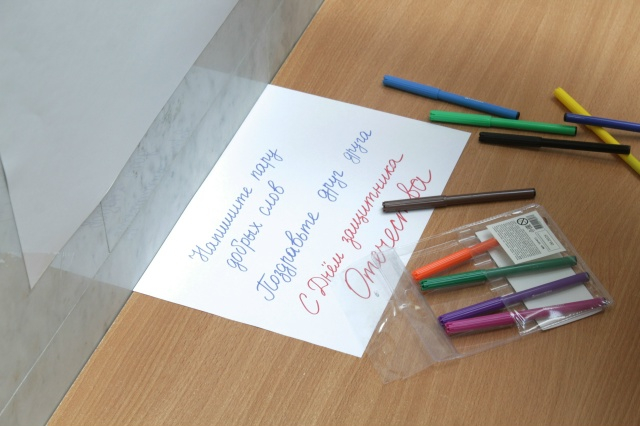 Напишите пару
добрых слов
Поздравьте друг друга
С Днём защитника
Отечества